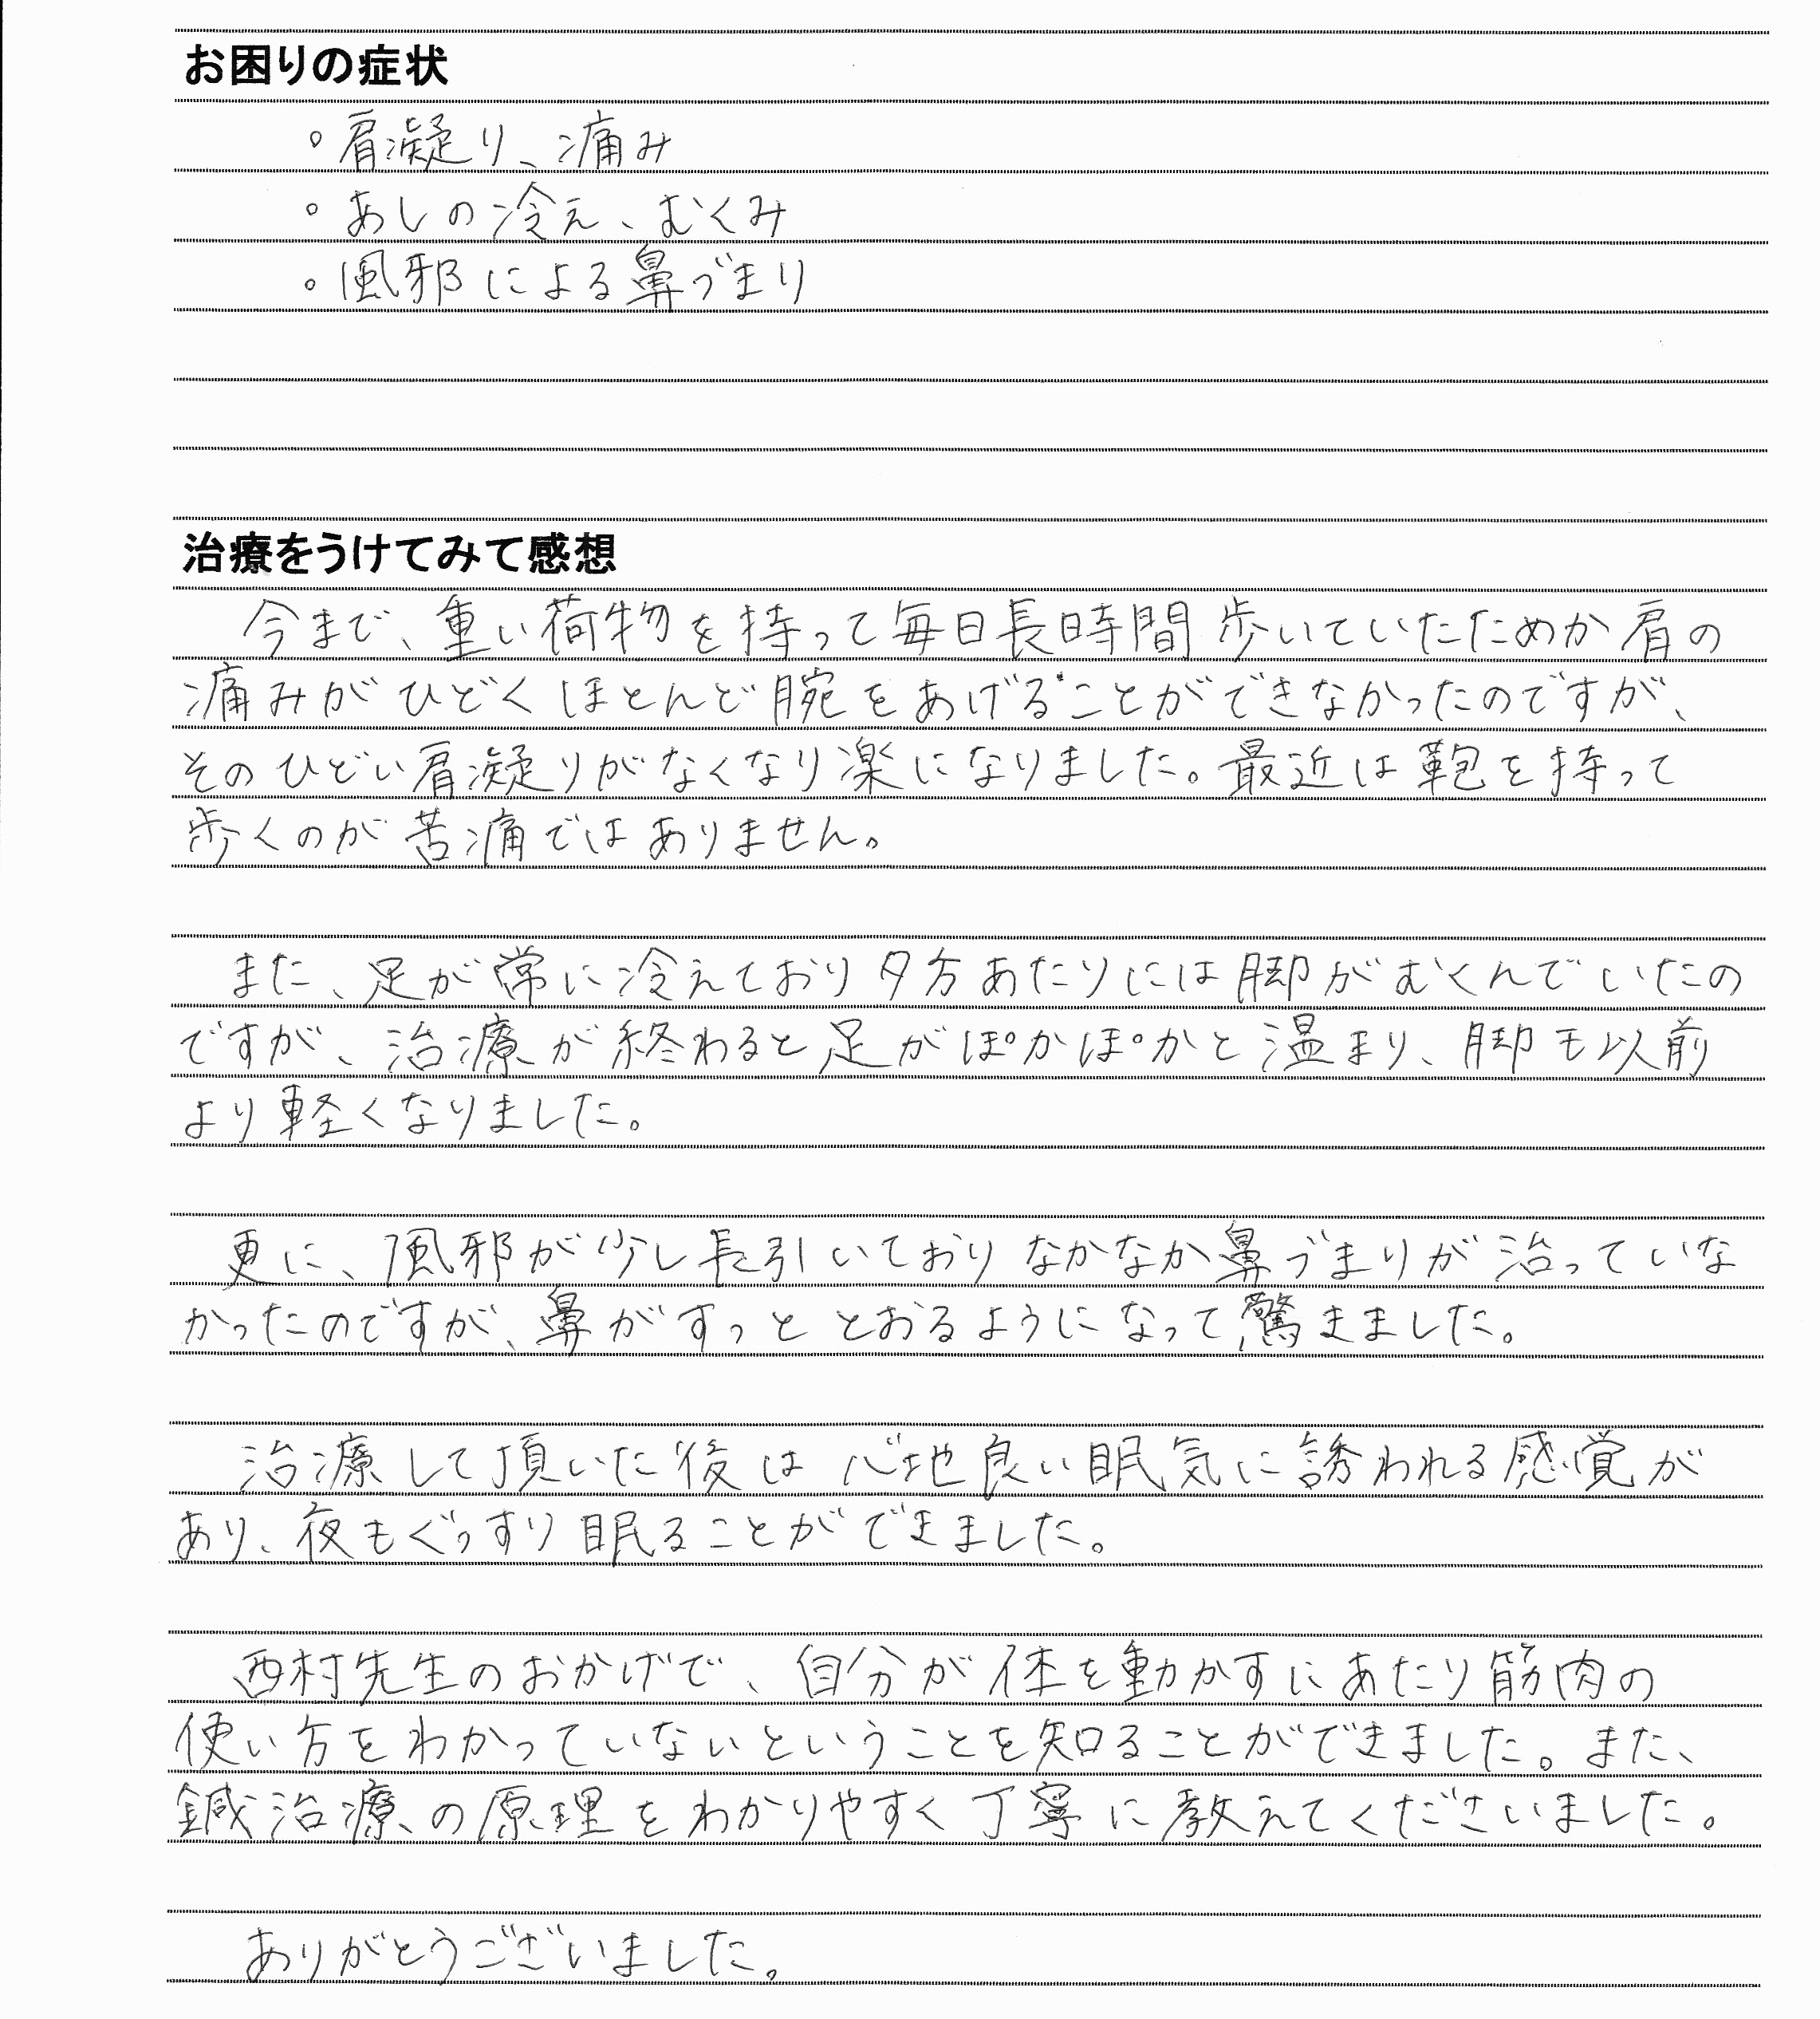 お困りの症状
。肩凝り、痛み
。あしの冷え、むくみ
。風邪による鼻づまり
治療をうけてみて感想
今まで、重い荷物を持って毎日長時間歩いていたためか肩の
痛みがひどくほとんど腕をあげることができなかったのですが、
そのひどい肩凝りがなくなり楽になりました。最近は鞄を持って
歩くのが苦痛ではありません。
また、足が常に冷えており夕方あたりには脚がむくんでいたの
ですが、治療が終わると足がぽかぽかと温まり、脚も以前
より軽くなりました。
更に、風邪が少し長引いておりなかなか鼻づまりが治っていな
かったのですが、鼻がすっととおるようになって驚きました。
治療して頂いた後は心地良い眠気に誘われる感覚が
あり、夜もぐっすり眠ることができました。
西村先生のおかげで、自分が体を動かすにあたり筋肉の
使い方をわかっていないということを知ることができました。また、
鍼治療の原理をわかりやすく丁寧に教えてくださいました。
ありがとうございました。